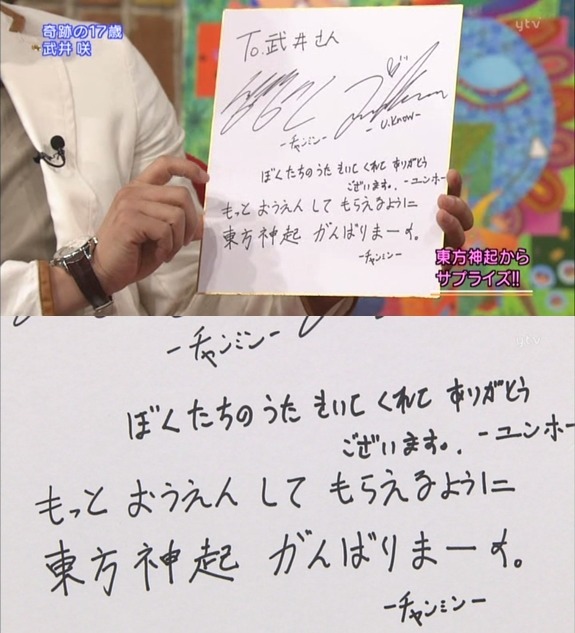 奇跡の17歳
武井 咲
ytv
To.武井さん
-チャンミン-
-U.Know-
ぼくたちのうた きいて くれて ありがとう
ございます。. -ユンホ-
もっと おうえん して もらえるように
東方神起 がんばりまーす。
-チャンミン-
東方神起から
サプライズ!!
ytv
-チャンミン-
ぼくたちのうた きいて くれて ありがとう
ございます。. -ユンホ-
もっと おうえん して もらえるように
東方神起 がんばりまーす。
-チャンミン-